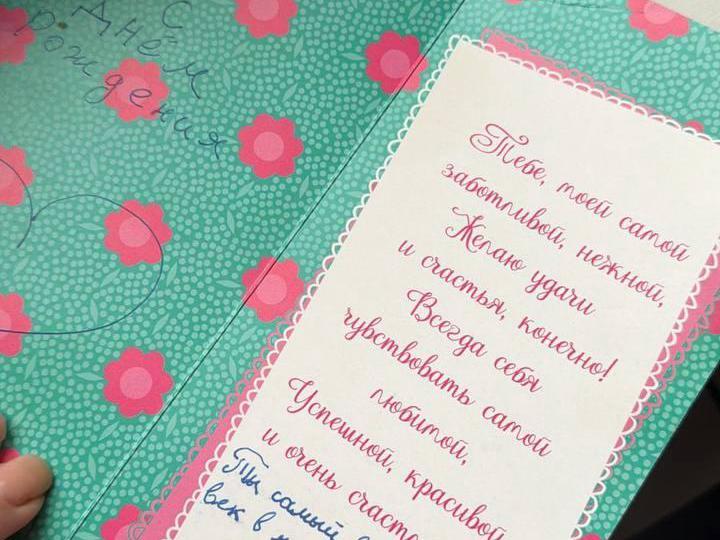 С
Днём
рождения
Тебе, моей самой
заботливой, нежной,
Желаю удачи
и счастья, конечно!
Всегда себя
чувствовать самой
любимой,
Успешной, красивой
и очень
Ты самый
век в